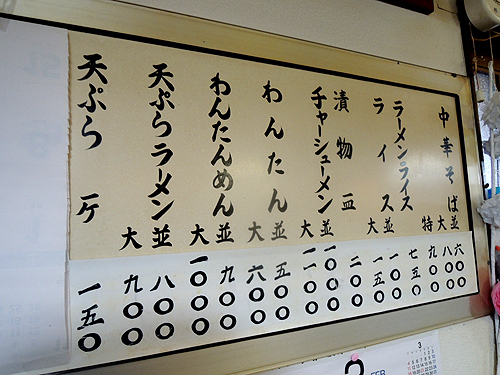 中華そば 並 六〇〇
大 八〇〇
特 九〇〇
ラーメンライス 七五〇
ライス 並 一〇〇
大 一五〇
漬物 一皿 二〇〇
チャーシューメン 並 一〇〇〇
大 一一〇〇
わんたん 並 五〇〇
大 六〇〇
わんたんめん 並 九〇〇
大 一〇〇〇
天ぷらラーメン 並 八〇〇
大 九〇〇
天ぷら 一ケ 一五〇
3
FEB